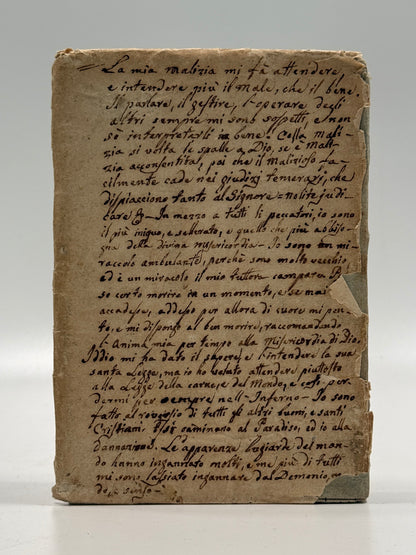 = La mia malizia mi fà attendere,
e intendere più il male, che il bene.
Il parlare, il gestire, l'operare degli
altri sempre mi sono sospetti, e non
sò interpretarli in bene. Colla mali-
zia si volta le spalle a Dio, se è mali-
zia acconsentita, poi che il malizioso fa-
cilmente cade nei giudizj temerarj, che
dispiacciono tanto al Signore = nolite judi-
care In mezzo a tutti li peccatori, io sono
il più iniquo, e scelerato, e quello che più abbiso-
gna della divina misericordia - Io sono un mi-
racolo ambulante, perchè sono molto vecchio,
ed è un miracolo il mio tuttora campare
so certo morire in un momento, e se mai
accadesse, adesso per allora di cuore mi pen-
to, e mi dispongo al ben morire, raccomandando
l'Anima mia per tempo alla Misericordia di Dio.
Iddio mi ha dato il sapere, e l'intendere la sua
santa Legge, ma io ho voluto attendere piuttosto
alla Legge della carne, e del Mondo, e così per-
dermi per sempre nell'Inferno - Io sono
fatto al rovescio di tutti gl'altri uomi, e santi
Cristiani Essi caminano al Paradiso, ed io alla
Dannazione. Le apparenze bugiarde del mon-
do hanno ingannato molti, e me più di tutti
mi sono lassiato ingannare dal Demonio,
senso -